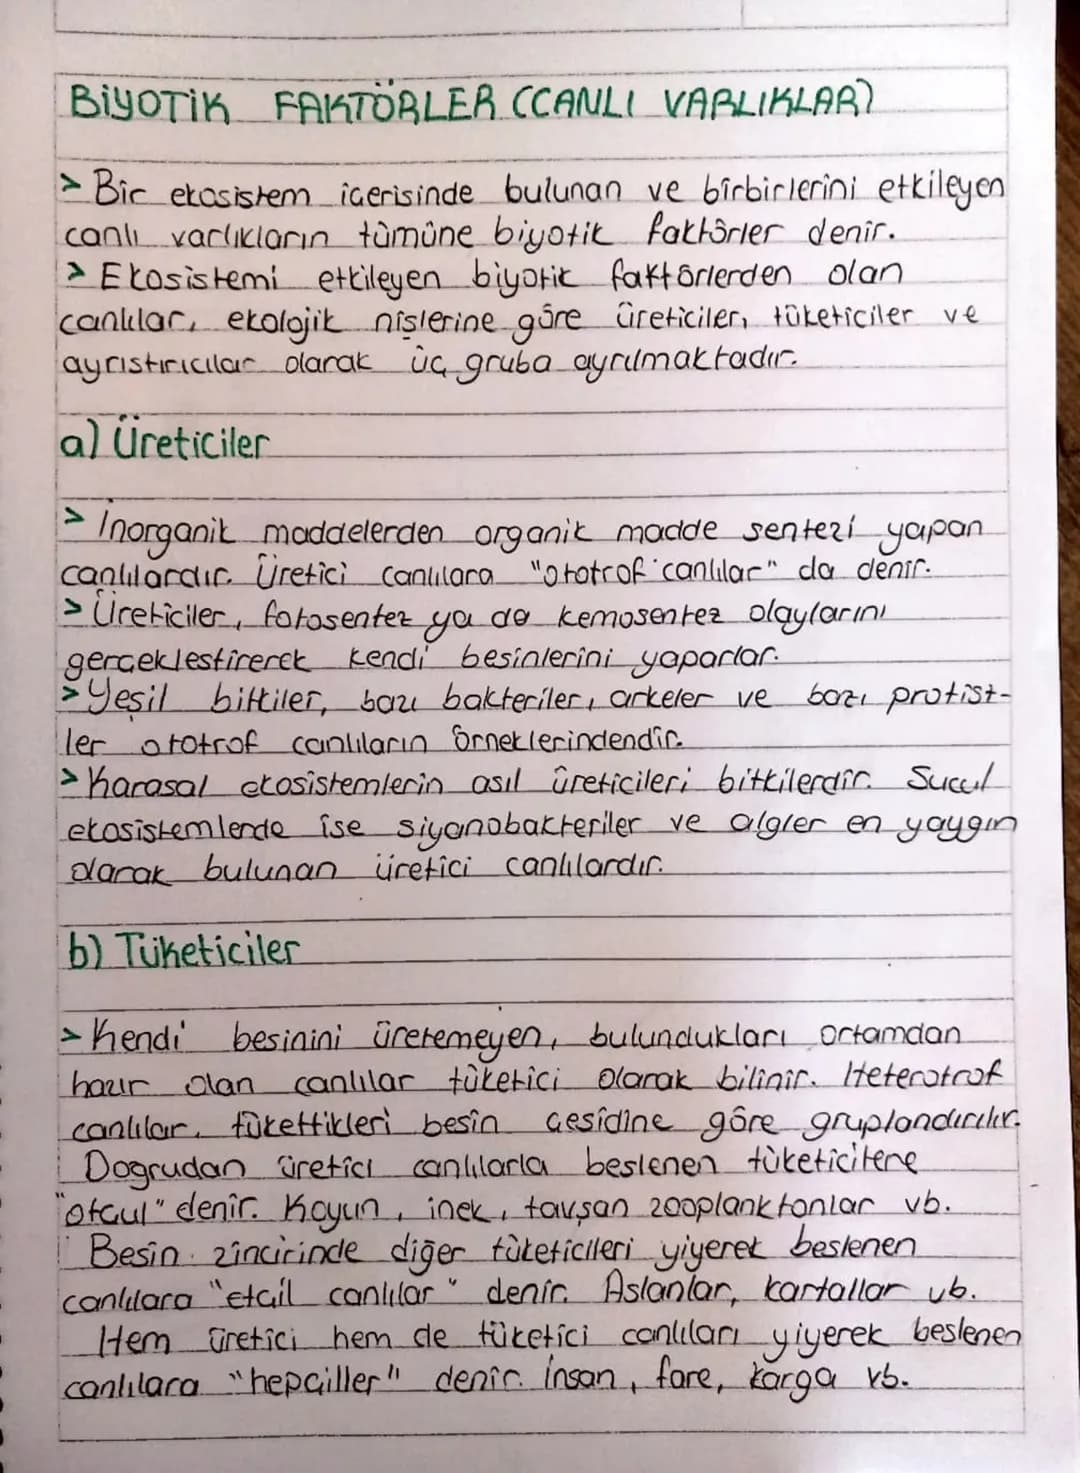 BİYOTİK FAKTÖRLER (CANLI VARLIKLAR)
> Bir ekosistem içerisinde bulunan ve birbirlerini etkileyen
canlı varlıkların tümüne biyotik faktörler denir.
> Ekosistemi etkileyen biyotik faktörlerden olan
canlılar, ekolojik nişlerine göre üreticiler, tüketiciler ve
ayrıştırıcılar olarak üç gruba ayrılmaktadır.
a) Üreticiler
> İnorganik maddelerden organik madde sentezi yapan
canlılardır. Üretici canlılara "ototrof canlılar" da denir.
> Üreticiler, fotosentez ya da kemosentez olaylarını
gerçekleştirerek kendi besinlerini yaparlar.
> Yeşil bitkiler, bazı bakteriler, arkeler ve bazı protist-
ler ototrof canlıların örneklerindendir.
> Karasal ekosistemlerin asıl üreticileri bitkilerdir. Sucul
ekosistemlerde ise siyanobakteriler ve algler en yaygın
olarak bulunan üretici canlılardır.
b) Tüketiciler
> Kendi besinini üretemeyen, bulundukları ortamdan
hazır olan canlılar tüketici olarak bilinir. Heterotrof
canlılar, tükettikleri besin çeşidine göre gruplandırılır.
Dogrudan üretici canlılarla beslenen tüketicilere
"otçul" denir. Koyun, inek, tavşan zooplanktonlar vb.
Besin zincirinde diğer tüketicileri yiyerek beslenen
canlılara "etçil canlılar" denir. Aslanlar, kartallar vb.
Hem üretici hem de tüketici canlıları yiyerek beslenen
canlılara "hepçiller" denir. İnsan, fare, karga vb.